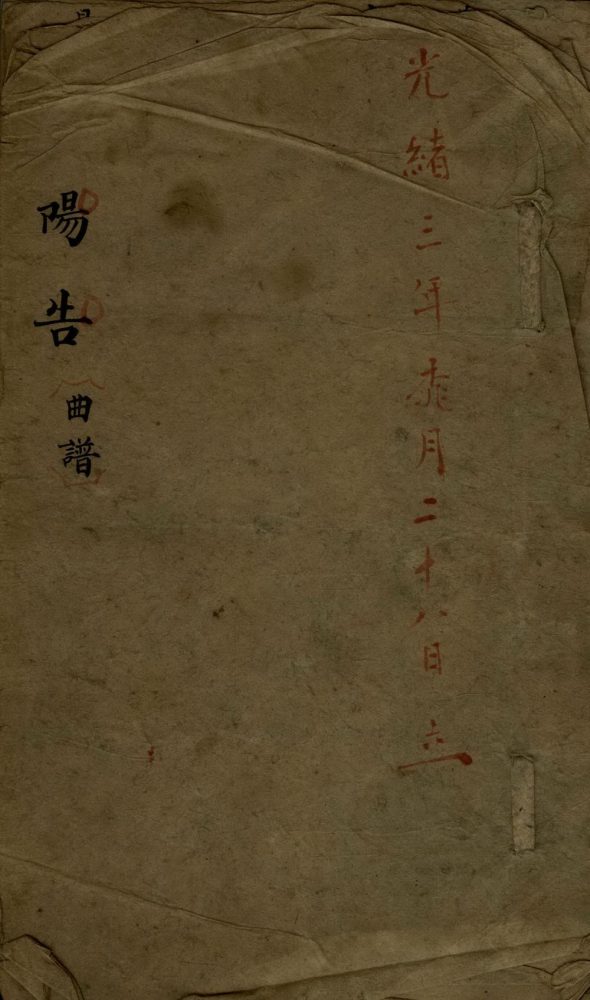 光緒三年月二十八日立
陽告
曲譜